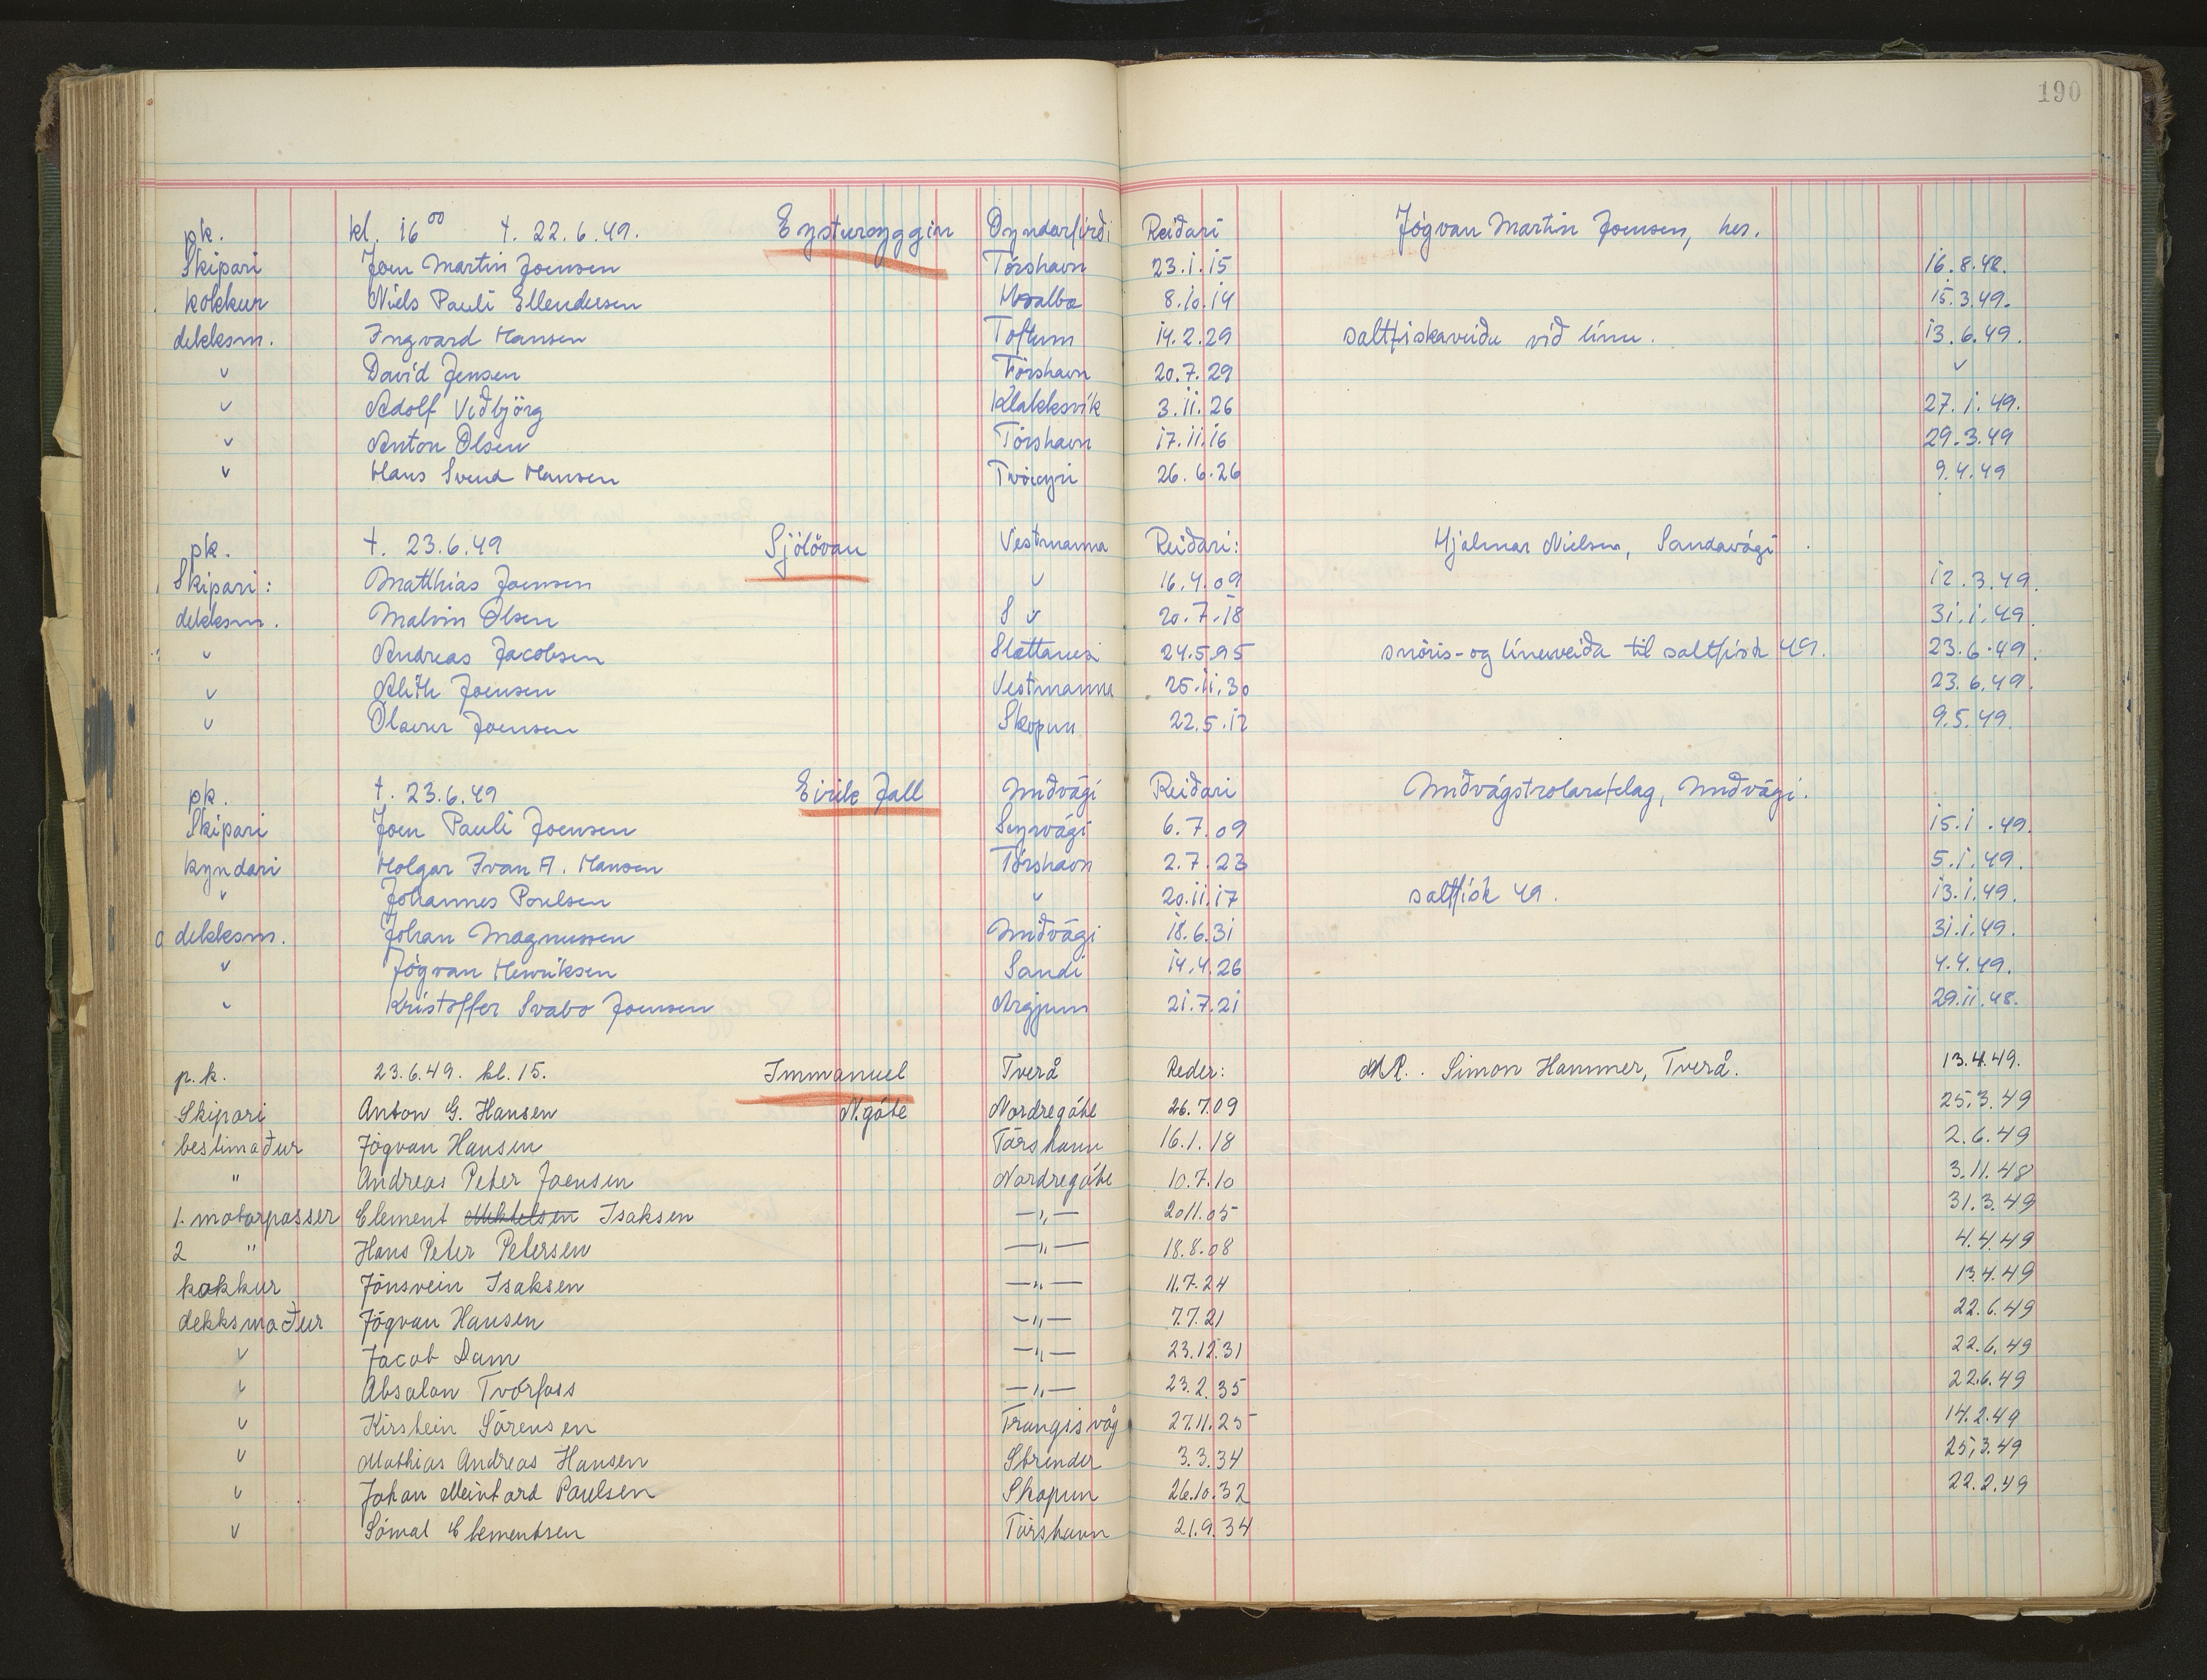 190
pk. kl. 16⁰⁰ t. 22.6.49. Eysturoyggin Oyndarfirði Reiðari Jógvan Martin Joensen, hes.
Skipari Joen Martin Joensen Tórshavn 23.1.15 16.8.48.
kokkur Niels Pauli Ellendersen Hvalba 8.10.14 15.3.49.
dekksm. Ingvard Hansen Toftum 14.2.29 saltfiskaveiðu við línu. 13.6.49.
v David Jensen Tórshavn 20.7.29 v
v Adolf Viðbjörg Klakksvík 3.11.26 27.1.49.
v Anton Olsen Tórshavn 17.11.16 29.3.49
v Hans Svend Hansen Tvöroyri 26.6.26 9.4.49
pk. t. 23.6.49 Sjólövan Vestmanna Reiðari: Hjalmar Nielsen, Sandavági
Skipari: Matthias Joensen v 16.4.09 12.3.49.
dekksm. Malvin Olsen S v 20.7.18 31.1.49.
v Andreas Jacobsen Slættanesi 24.5.95 snøris- og línuveiða til saltfisk 49. 23.6.49.
v Joensen Vestmanna 25.11.30 23.6.49.
v Ólavur Joensen Skopun 22.5.12 9.5.49.
pk. t. 23.6.49 Eirik Fall Miðvági Reiðari Miðvágstrolarafelag, Miðvági.
Skipari Joen Pauli Joensen Sørvági 6.7.09 15.1.49.
kyndari Holgar Ivan A. Hansen Tórshavn 2.7.23 5.1.49.
v Johannes Poulsen v 20.11.17 saltfisk 49. 13.1.49.
dekksm. Johan Magnussen Miðvági 18.6.31 31.1.49.
v Jógvan Henriksen Sandi 14.4.26 4.4.49.
v Kristoffer Svabo Joensen Argjum 21.7.21 29.11.48.
p.k. 23.6.49. kl. 15. Immanuel Tverå Reder: A/R. Simon Hammer, Tverå. 13.4.49.
Skipari Anton G. Hansen N.göte Nordregöte 26.7.09 25.3.49
bestimaður Jógvan Hansen Tórshavn 16.1.18 2.6.49
" Andreas Peter Joensen Nordregöte 10.7.10 3.11.48
1. motorpasser Clement Mikkelsen Isaksen —"— 20.11.05 31.3.49
2 " Hans Peter Petersen —"— 18.8.08 4.4.49
kokkur Jónsvein Isaksen —"— 11.7.24 13.4.49
dekksmaður Jógvan Hansen —"— 7.7.21 22.6.49
v Jacob Dam —"— 23.12.31 22.6.49
v Absalon Tvörfoss —"— 23.2.35 22.6.49
v Kirstein Sörensen Trangisvåg 27.11.25 14.2.49
v Mathias Andreas Hansen Strender 3.3.34 25.3.49
v Johan Meinhard Poulsen Skopun 26.10.32 22.2.49
v Sámal Clementsen Tórshavn 21.9.34